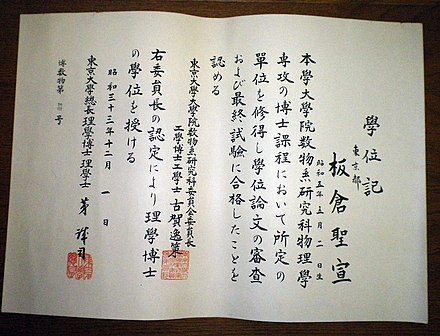 學位記
東京都
板倉聖宣
昭和五年五月二日生
本學大學院数物系研究科物理學
専攻の博士課程において所定の
單位を修得し學位論文の審査
および最終試驗に合格したことを
認める
東京大學大學院数物系研究科委員会委員長
工學博士工學士 古賀逸策
右委員長の認定により理學博士
の學位を授ける
昭和三十三年十二月一日
東京大學總長理學博士理學士 茅誠司
博数物第 号